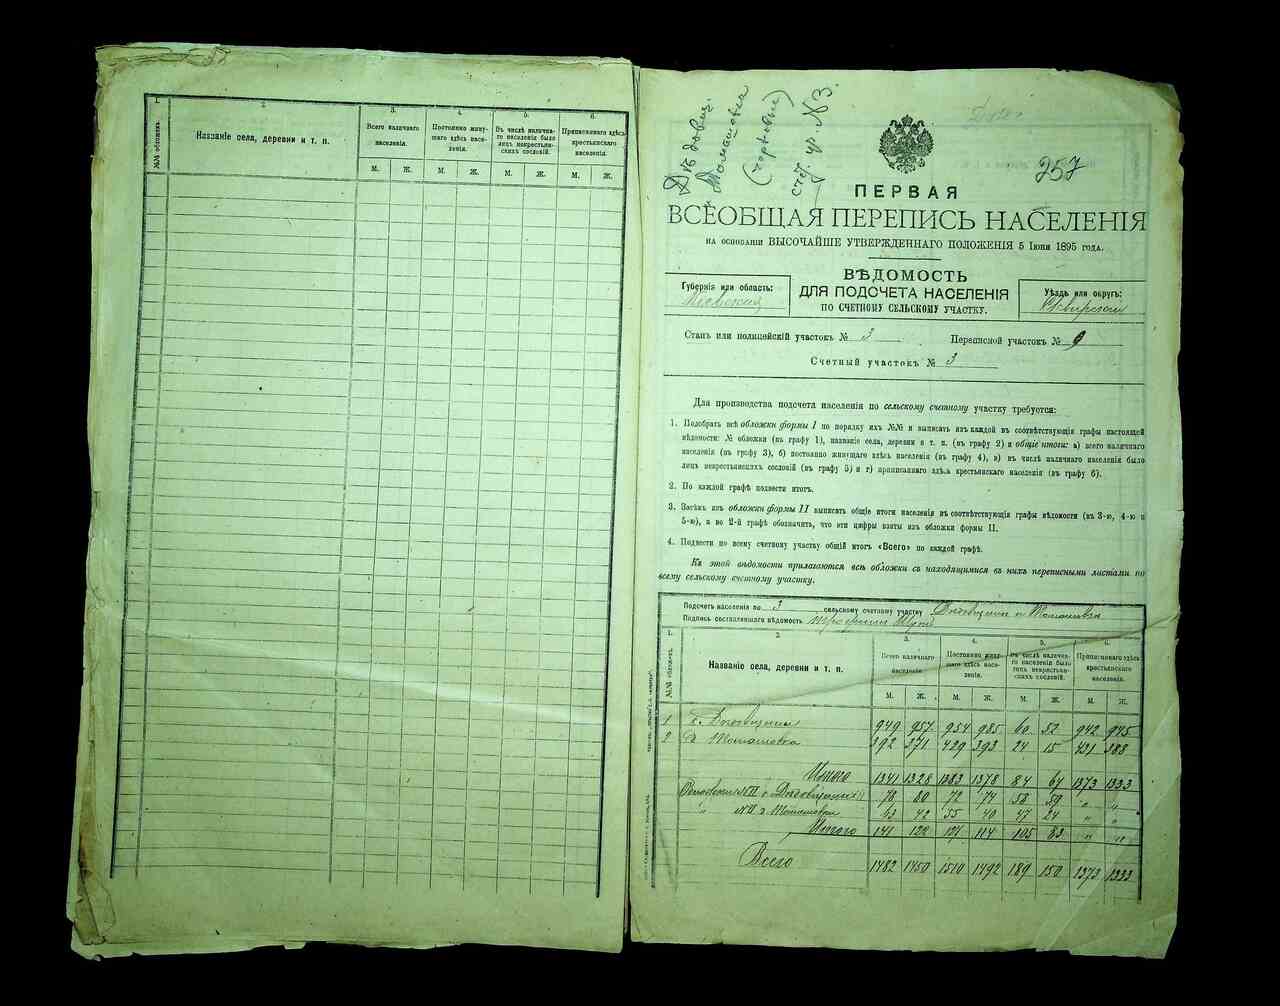 1.
2.
3.
4.
5.
6.
№№ обложек.
Названіе села, деревни и т. п.
Всего наличнаго населенія.
Постоянно живущаго здѣсь населенія.
Въ числѣ наличнаго населенія было лицъ некрестьянскихъ сословій.
Приписаннаго здѣсь крестьянскаго населенія.
М. Ж. М. Ж. М. Ж. М. Ж.
стр. уч. №3.
257
ПЕРВАЯ
ВСЕОБЩАЯ ПЕРЕПИСЬ НАСЕЛЕНІЯ
НА ОСНОВАНІИ ВЫСОЧАЙШЕ УТВЕРЖДЕННАГО ПОЛОЖЕНІЯ 5 Іюня 1895 года.
ВѢДОМОСТЬ
ДЛЯ ПОДСЧЕТА НАСЕЛЕНІЯ
ПО СЧЕТНОМУ СЕЛЬСКОМУ УЧАСТКУ.
Губернія или область:
Кіевская
Уѣздъ или округъ:
Сквирскій
Станъ или полицейскій участокъ № 3 Переписной участокъ № 9
Счетный участокъ № 3
Для производства подсчета населенія по сельскому счетному участку требуется:
1. Подобрать всѣ обложки формы I по порядку ихъ №№ и выписать изъ каждой въ соотвѣтствующія графы настоящей
вѣдомости: № обложки (въ графу 1), названіе села, деревни и т. п. (въ графу 2) и общіе итоги: а) всего наличнаго
населенія (въ графу 3), б) постоянно живущаго здѣсь населенія (въ графу 4), в) въ числѣ наличнаго населенія было
лицъ некрестьянскихъ сословій (въ графу 5) и г) приписаннаго здѣсь крестьянскаго населенія (въ графу 6).
2. По каждой графѣ подвести итогъ.
3. Затѣмъ изъ обложки формы II выписать общіе итоги населенія въ соотвѣтствующія графы вѣдомости (въ 3-ю, 4-ю и
5-ю), а во 2-й графѣ обозначить, что эти цифры взяты изъ обложки формы II.
4. Подвести по всему счетному участку общій итогъ «Всего» по каждой графѣ.
Къ этой вѣдомости прилагаются всѣ обложки съ находящимися въ нихъ переписными листами по
всему сельскому счетному участку.
Подсчетъ населенія по 3 сельскому счетному участку
Подпись составлявшаго вѣдомость
1. 2. 3. 4. 5. 6.
№№ обложекъ.
Названіе села, деревни и т. п.
Всего наличнаго населенія.
Постоянно живущаго здѣсь населенія.
Въ числѣ наличнаго населенія было лицъ некрестьянскихъ сословій.
Приписаннаго здѣсь крестьянскаго населенія.
М. Ж. М. Ж. М. Ж. М. Ж.
1 949 957 954 985 60 52 942 945
2 Томашовка 392 371 429 393 24 15 431 388
Итого 1341 1328 1383 1378 84 67 1373 1333
78 80 72 74 58 59 " "
" №II д Томашовки 63 42 55 40 47 24 " "
Итого 141 122 127 114 105 83 " "
Всего 1482 1450 1510 1492 189 150 1373 1333